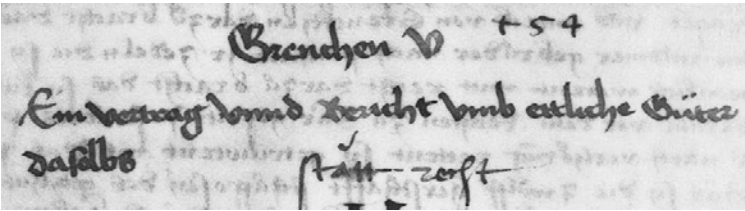 + 54
Grenchen V
Ein vertrag vnnd Bericht vmb ettliche Güter
daselbs
statt recht